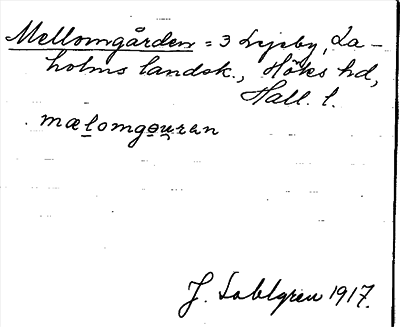 Mellomgården = 3 Lejeby, La-
holms landsk., Höks hd,
Hall. l.
mælomgɷu̯ran
J. Sahlgren 1917.